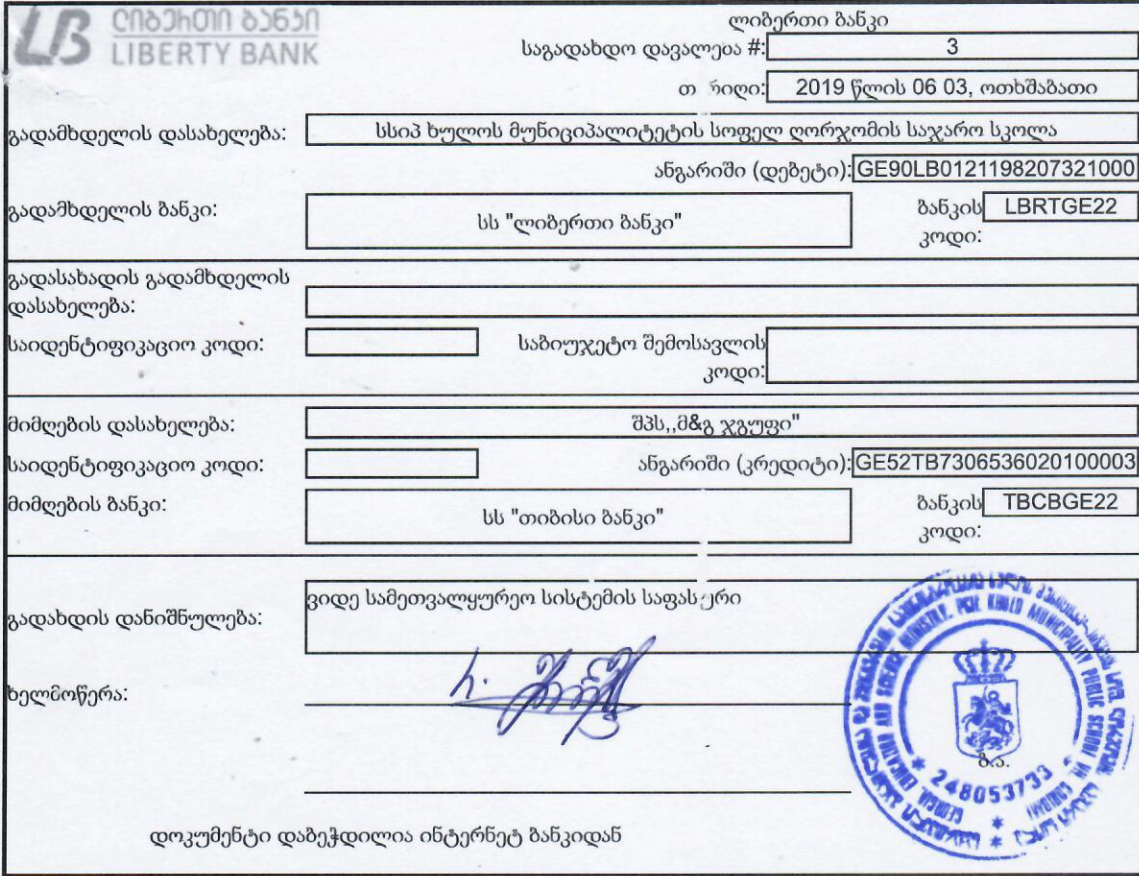 ლიბერთი ბანკი
LIBERTY BANK
ლიბერთი ბანკი
საგადახდო დავალება #: 3
თარიღი: 2019 წლის 06 03, ოთხშაბათი
გადამხდელის დასახელება: სსიპ ხულოს მუნიციპალიტეტის სოფელ ღორჯომის საჯარო სკოლა
ანგარიში (დებეტი): GE90LB0121198207321000
გადამხდელის ბანკი: სს "ლიბერთი ბანკი" ბანკის კოდი: LBRTGE22
გადასახადის გადამხდელის
დასახელება:
საიდენტიფიკაციო კოდი: საბიუჯეტო შემოსავლის
კოდი:
მიმღების დასახელება: შპს,,მ&გ ჯგუფი"
საიდენტიფიკაციო კოდი: ანგარიში (კრედიტი): GE52TB7306536020100003
მიმღების ბანკი: სს "თიბისი ბანკი" ბანკის კოდი: TBCBGE22
გადახდის დანიშნულება: ვიდე სამეთვალყურეო სისტემის საფასური
ხელმოწერა:
ბ.ა.
248053733
დოკუმენტი დაბეჭდილია ინტერნეტ ბანკიდან